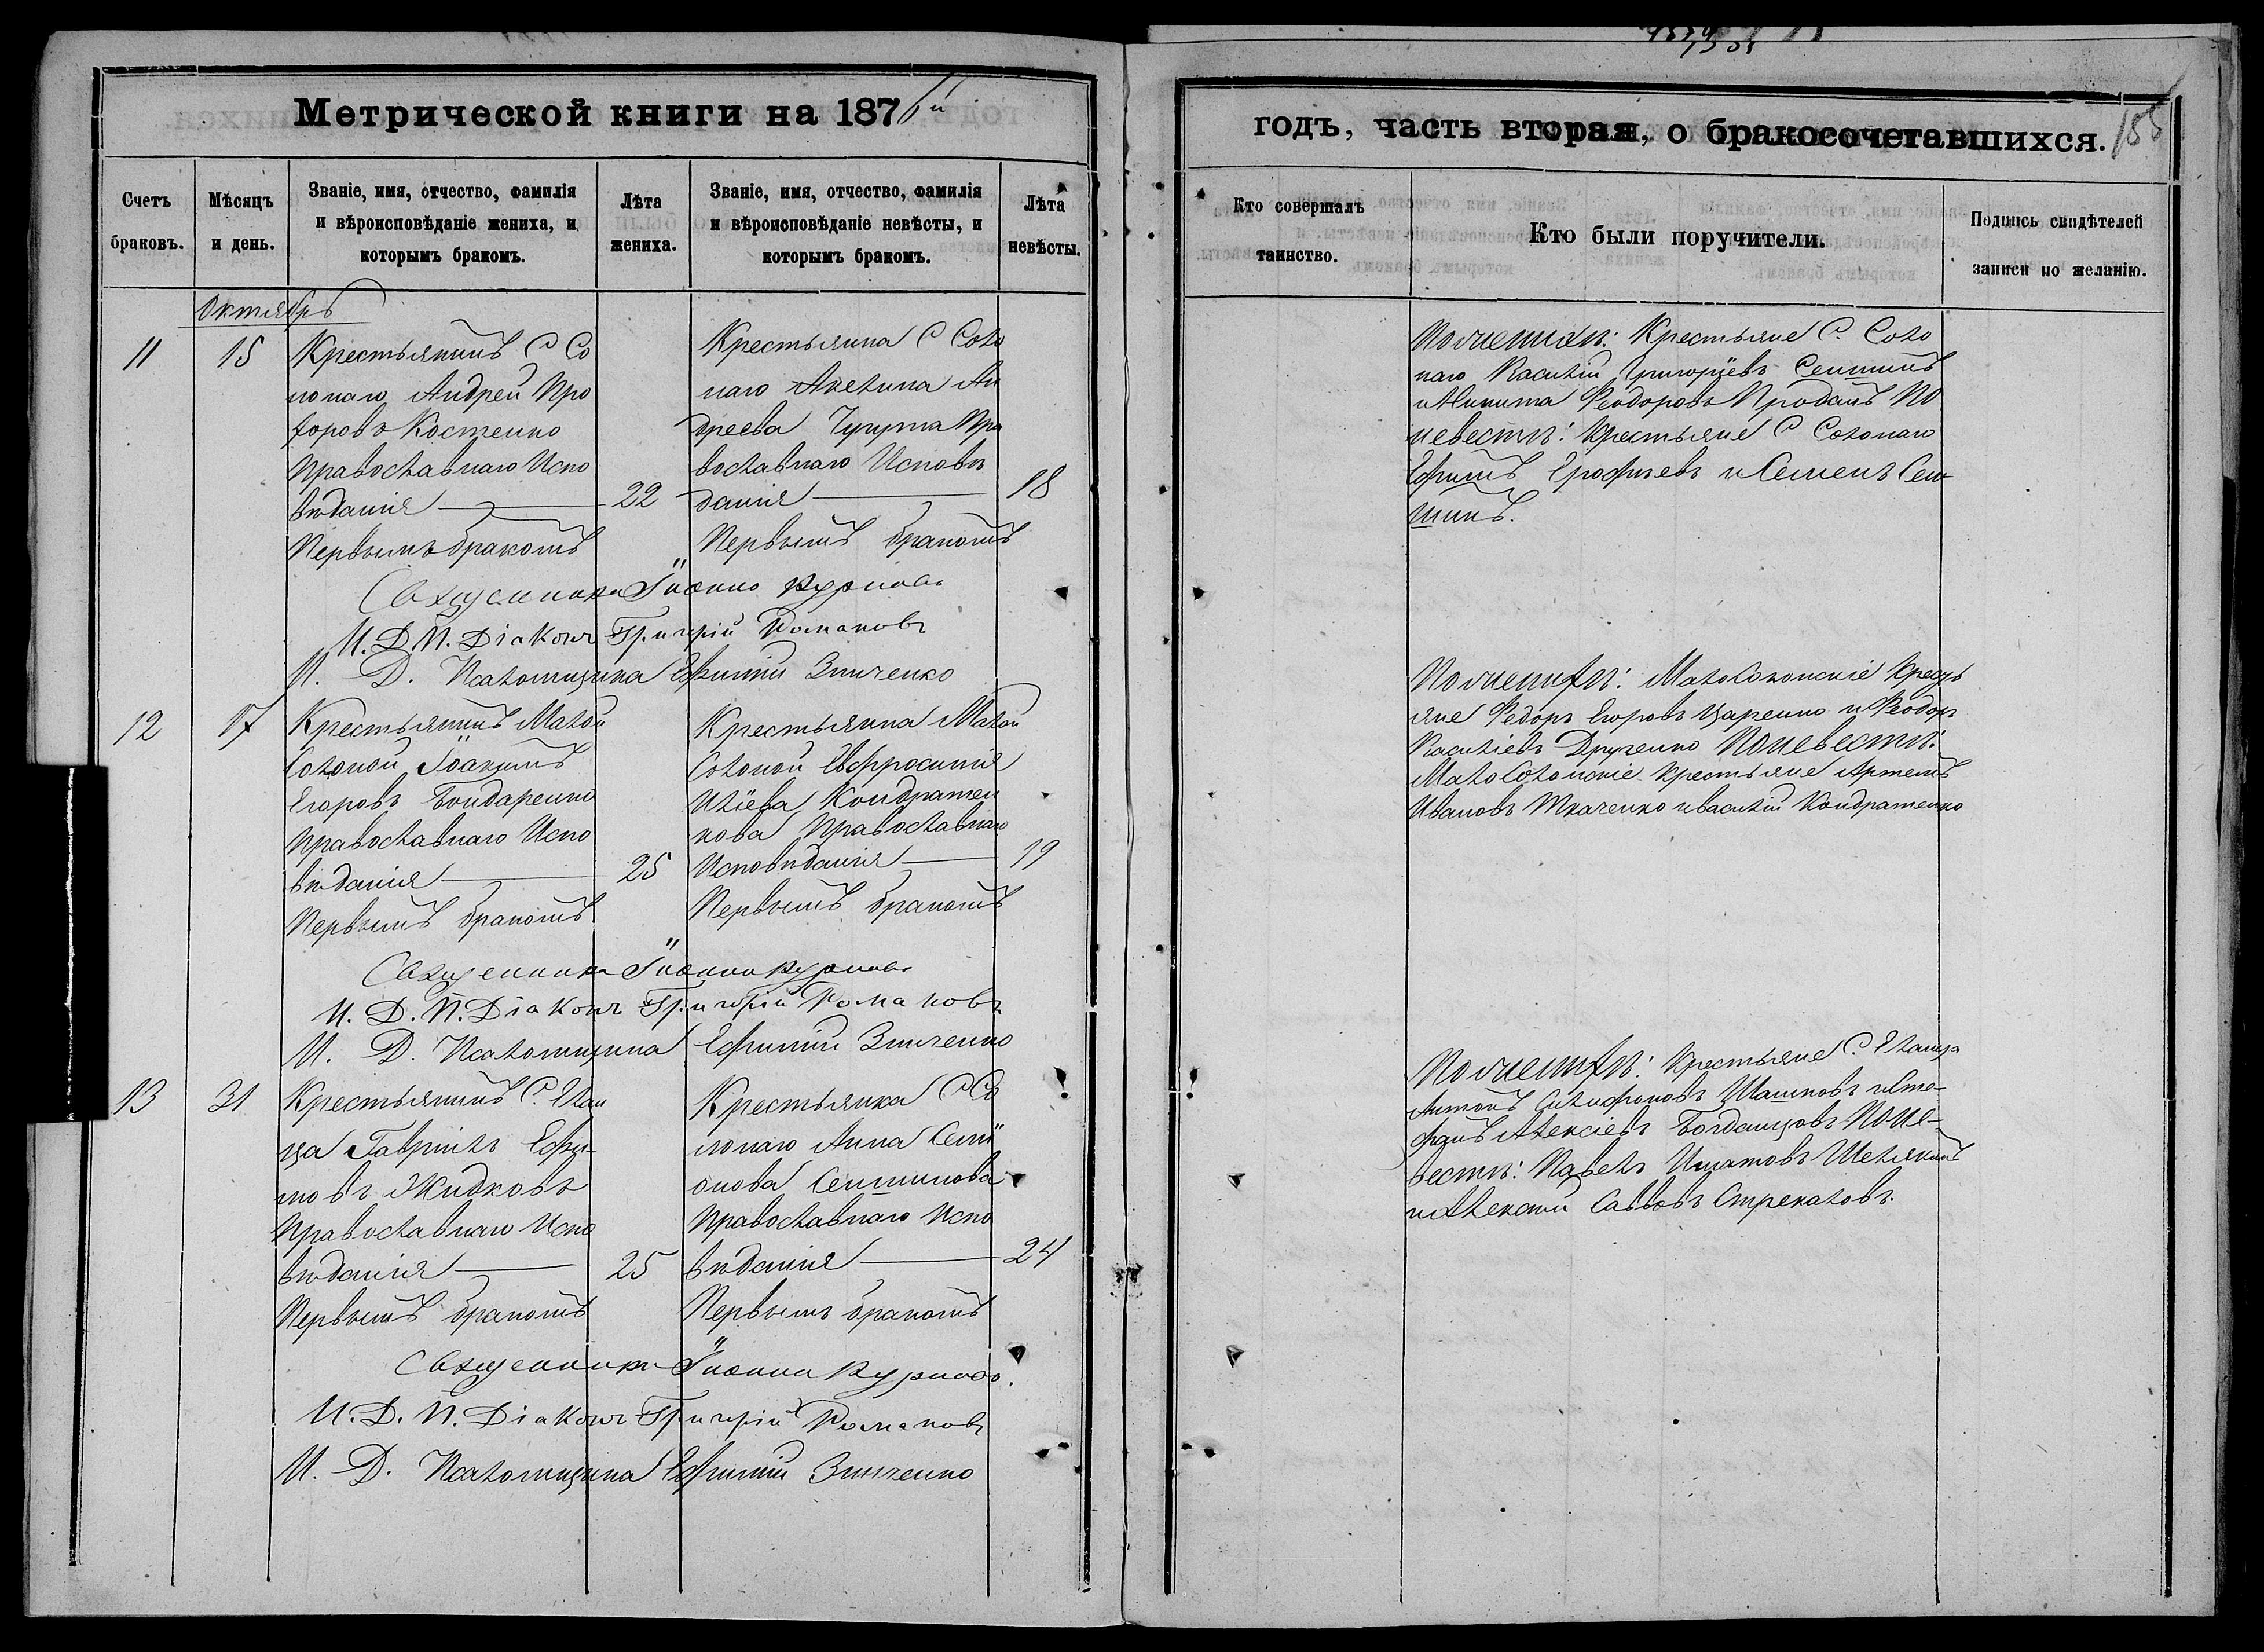 Метрической книги на 187
годъ, часть вторая, о бракосочетавшихся.
155
Счетъ браковъ.
Мѣсяцъ и день.
Званіе, имя, отчество, фамилія и вѣроисповѣданіе жениха, и которымъ бракомъ.
Лѣта жениха.
Званіе, имя, отчество, фамилія и вѣроисповѣданіе невѣсты, и которымъ бракомъ.
Лѣта невѣсты.
Кто совершалъ таинство.
Кто были поручители.
Подпись свидѣтелей записи по желанію.
Октябрь
11
15
Крестьянинъ С Со
лонаго Андрей Про
хоровъ Костенко
Православнаго Испо
вѣданія
Первымъ бракомъ
22
Крестьянка С Соло
наго Акелина Ан
дреева Чугута Пра
вославнаго Исповѣ
данія
Первымъ бракомъ
18
Священникъ Іоаннъ Курилов
И. Д. П. Діаконъ Григорій Романовъ
И. Д. Псаломщика Ефимій Зинченко
По женихѣ: Крестьяне С. Соло
наго Василій Григоріевъ Сепшинъ
и Никита Феодоровъ Проданъ По
невестѣ: Крестьяне С Солонаго
Ефимъ Ерофѣевъ и Семенъ Сеп
шинъ.
12
17
Крестьянинъ Малой
Солоной Іоакимъ
Егоровъ Бондаренко
Православнаго Испо
вѣданія
Первымъ бракомъ
25
Крестьянка Малой
Солоной Евфросинія
Иліева Кондратен
кова Православнаго
Исповѣданія
Первымъ бракомъ
19
Священникъ Іоаннъ Курилов
И. Д. П. Діаконъ Григорій Романовъ
И. Д. Псаломщика Ефимій Зинченко
По женихѣ: Малосолонскіе Кресть
яне Федоръ Егоровъ Царенко и Феодоръ
Василіевъ Друченко По невестѣ:
Малосолонскіе крестьяне Артемъ
Ивановъ Ткаченко и Василій Кондратенко
13
31
Крестьянинъ С. Елан
ца Гавріилъ Ефи-
мовъ Жидковъ
Православнаго Испо
вѣданія
Первымъ бракомъ
25
Крестьянка С Со
лонаго Анна Семі
онова Сепшинова
Православнаго Испо
вѣданія
Первымъ бракомъ
24
Священникъ Іоаннъ Курилов.
И. Д. П. Діаконъ Григорій Романовъ
И. Д. Псаломщика Ефимій Зинченко
По женихѣ: Крестьяне С. Еланца
Антонъ Сілифоновъ Шашковъ и Сте-
фанъ Алексіевъ Богданцовъ По не-
вестѣ: Павелъ Игнатовъ Шелякинъ
и Алексій Саввовъ Стрекаловъ.